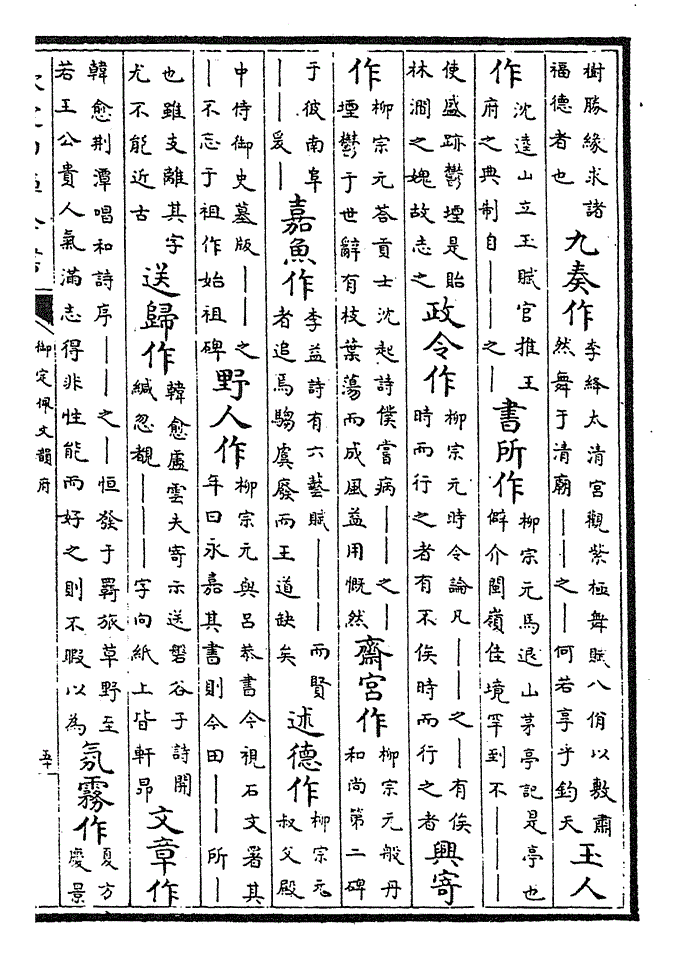 樹勝緣求諸
福德者也
九奏作
李絳太清宮觀紫極舞賦八佾以敷肅
然舞于清廟——之—何若享乎鈞天
玉人
作
沈逵山立玉賦官推玉
府之典制自——之—
書所作
柳宗元馬退山茅亭記是亭也
僻介閩嶺佳境罕到不———
使盛跡鬱堙是貽
林澗之媿故志之
政令作
柳宗元時令論凡——之—有俟
時而行之者有不俟時而行之者
興寄
作
柳宗元荅貢士沈起詩僕嘗病——之—
堙鬱于世辭有枝葉蕩而成風益用慨然
齋宮作
柳宗元般丹
和尚第二碑
于彼南阜
——爰—
嘉魚作
李益詩有六藝賦———而賢
者追焉騶虞廢而王道缺矣
述德作
柳宗元
叔父殿
中侍御史墓版———之
—不忘于祖作始祖碑
野人作
柳宗元與呂恭書今視石文署其
年曰永嘉其書則今田——所—
也雖支離其字
尤不能近古
送歸作
韓愈盧雲夫寄示送盤谷子詩開
緘忽覩———字向紙上皆軒昂
文章作
韓愈荆潭唱和詩序——之—恒發于羇旅草野至
若王公貴人氣滿志得非性能而好之則不暇以為
氛霧作
夏方
慶景
御定佩文韻府